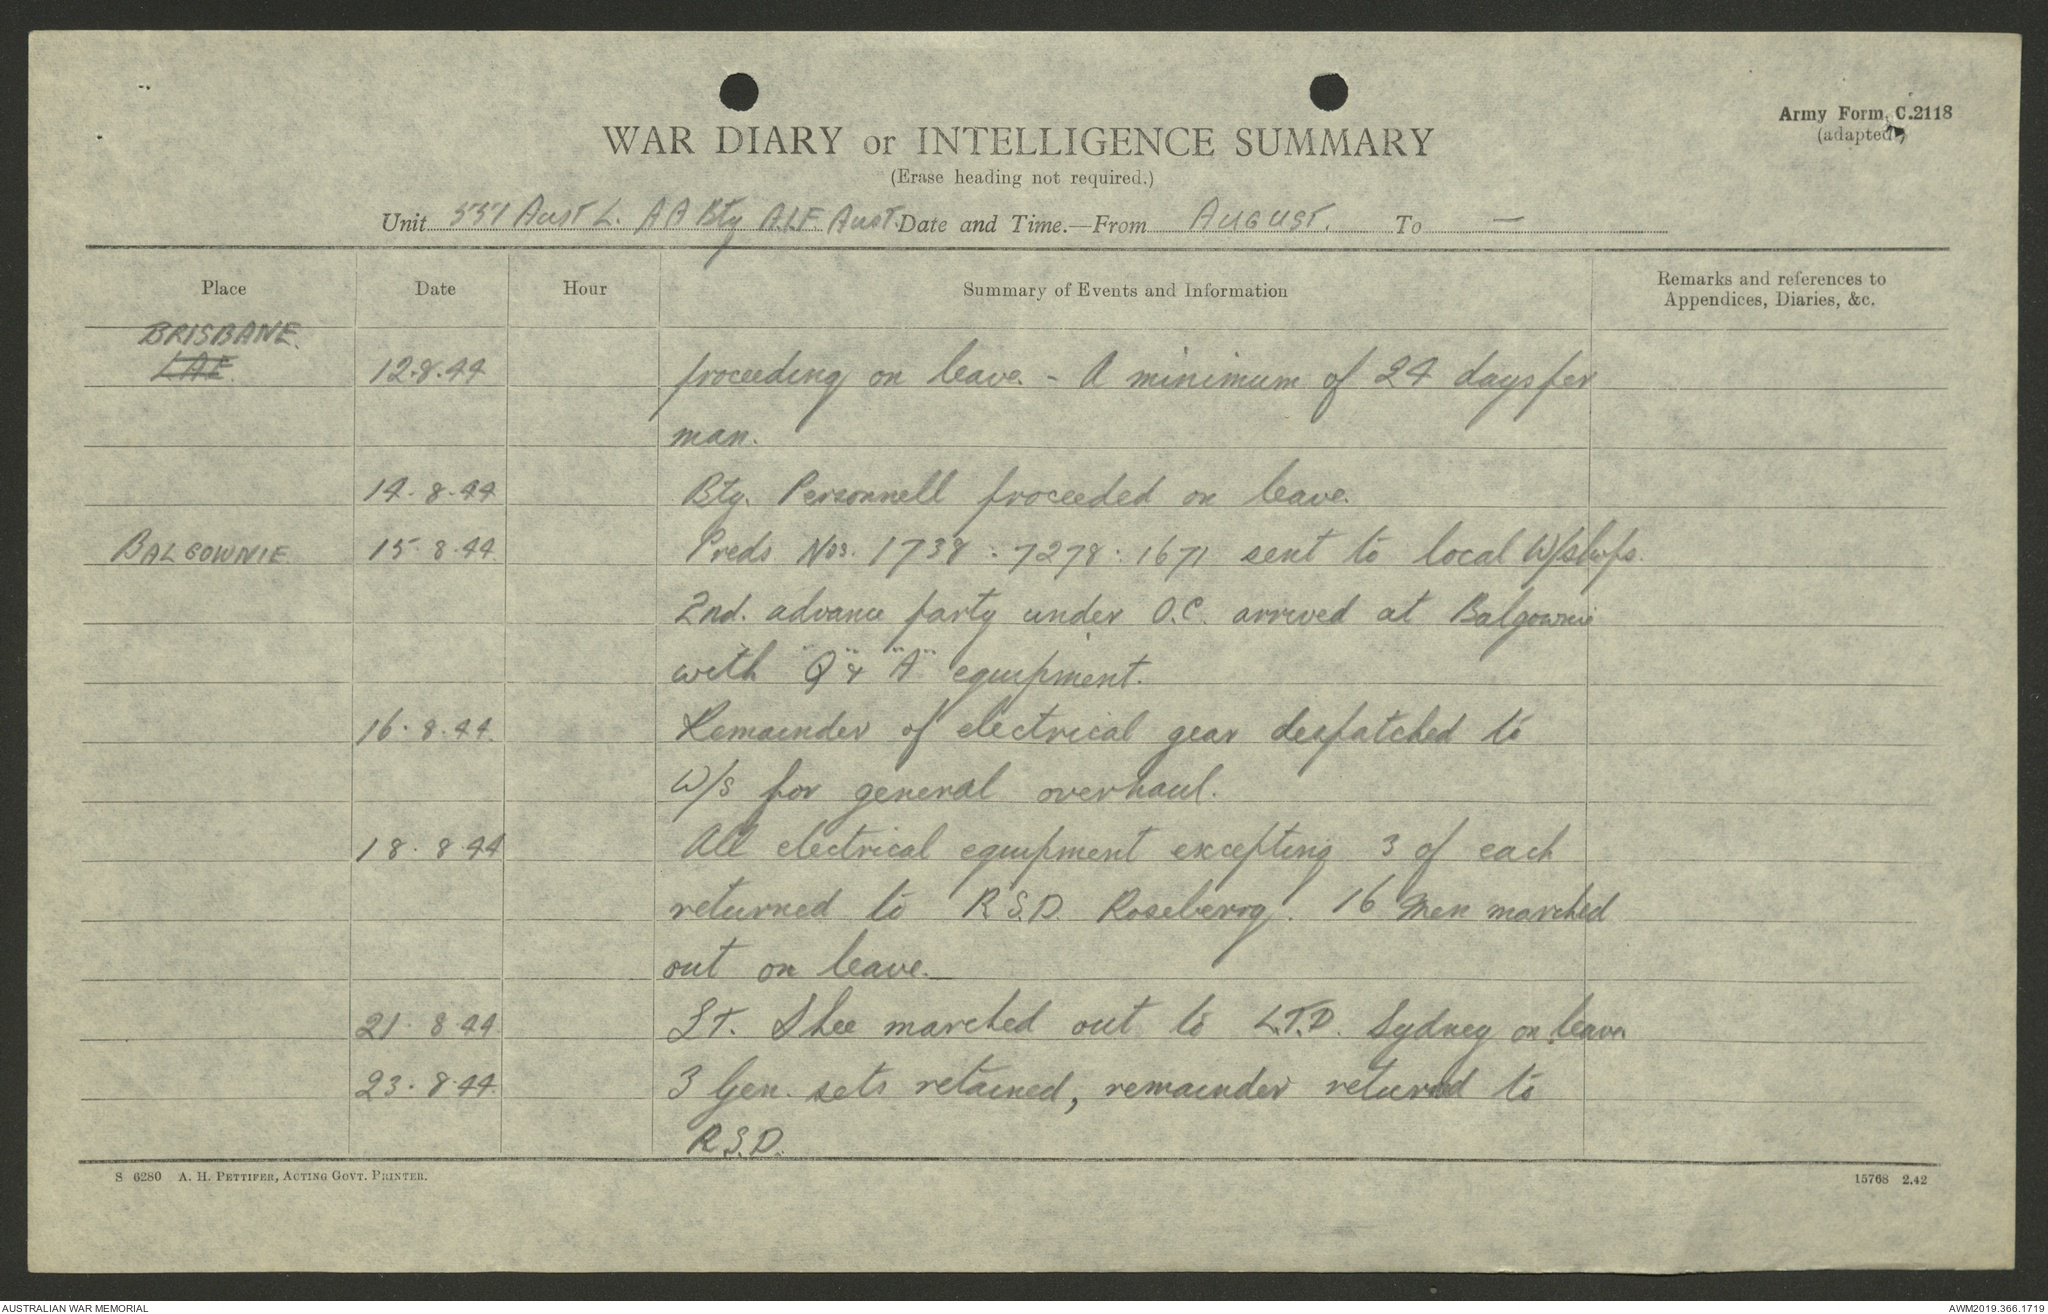 Army Form C.2118
(adapted)
WAR DIARY or INTELLIGENCE SUMMARY
(Erase heading not required.)
Unit 557 Aust L. AA Bty A.I.F. Aust. Date and Time.—From AUGUST. To —
Place Date Hour Summary of Events and Information Remarks and references to
Appendices, Diaries, &c.
BRISBANE.
LAE. 12.8.44 proceeding on leave. - A minimum of 24 days per
man.
14.8.44 Bty. Personnell proceeded on leave.
BALGOWNIE 15.8.44 Preds Nos. 1738 : 7278 : 1671 sent to local W/shops.
2nd. advance party under O.C. arrived at Balgownie
with "Q" & "A" equipment.
16.8.44 Remainder of electrical gear despatched to
W/S for general overhaul.
18.8.44 All electrical equipment excepting 3 of each
returned to R.S.D. Roseberry. 16 Men marched
out on leave.
21.8.44 LT. Shee marched out to L.T.D. Sydney on leave.
23.8.44 3 Gen. sets retained, remainder returned to
R.S.D.
S 6280 A. H. PETTIFER, ACTING GOVT. PRINTER. 15768 2.42
AUSTRALIAN WAR MEMORIAL AWM2019.366.1719